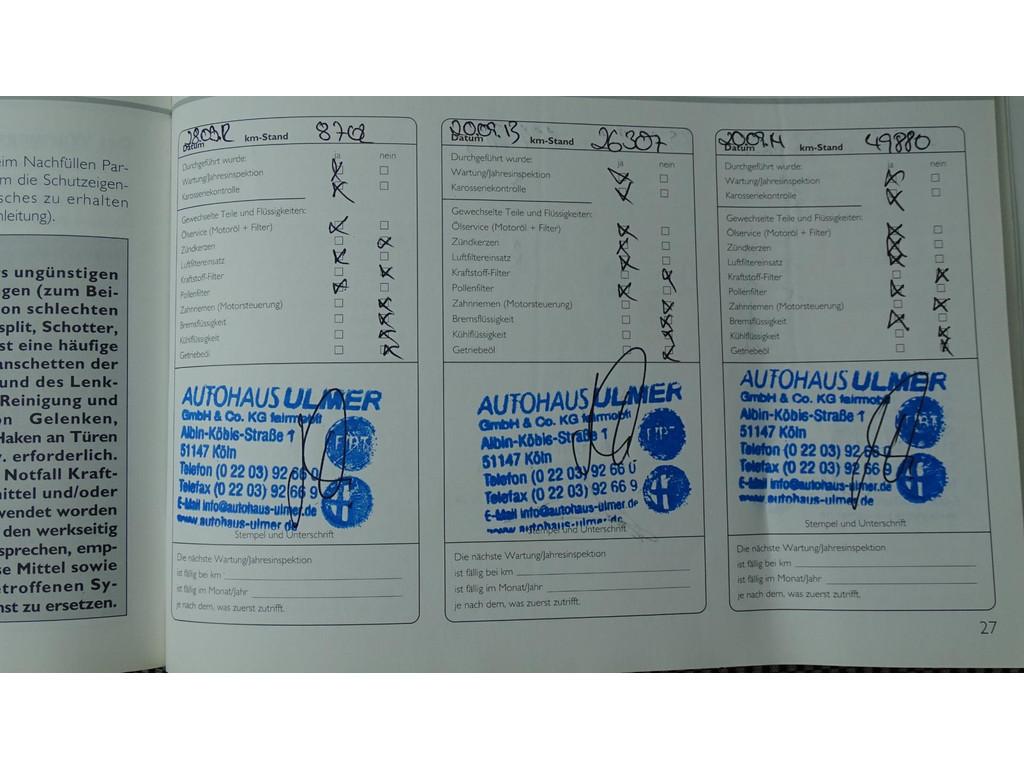 eim Nachfüllen Par-
m die Schutzeigen-
sches zu erhalten
nleitung).
rs ungünstigen
ngen (zum Bei-
on schlechten
split, Schotter,
st eine häufige
anschetten der
und des Lenk-
Reinigung und
on Gelenken,
Haken an Türen
v. erforderlich.
Notfall Kraft-
mittel und/oder
wendet worden
den werkseitig
sprechen, emp-
se Mittel sowie
etroffenen Sy-
nst zu ersetzen.
Datum km-Stand
Durchgeführt wurde: ja nein
Wartung/Jahresinspektion
Karosseriekontrolle
Gewechselte Teile und Flüssigkeiten:
Ölservice (Motoröl + Filter)
Zündkerzen
Luftfiltereinsatz
Kraftstoff-Filter
Pollenfilter
Zahnriemen (Motorsteuerung)
Bremsflüssigkeit
Kühlflüssigkeit
Getriebeöl
AUTOHAUS ULMER
GmbH & Co. KG fairmobil
Albin-Köbis-Straße 1
51147 Köln
Telefon (0 22 03) 92 66 0
Telefax (0 22 03) 92 66 9
E-Mail info@autohaus-ulmer.de
www.autohaus-ulmer.de
Stempel und Unterschrift
Die nächste Wartung/Jahresinspektion
ist fällig bei km
ist fällig im Monat/Jahr
je nach dem, was zuerst zutrifft.
20.09.13
Datum km-Stand 26307
Durchgeführt wurde: ja nein
Wartung/Jahresinspektion
Karosseriekontrolle
Gewechselte Teile und Flüssigkeiten:
Ölservice (Motoröl + Filter)
Zündkerzen
Luftfiltereinsatz
Kraftstoff-Filter
Pollenfilter
Zahnriemen (Motorsteuerung)
Bremsflüssigkeit
Kühlflüssigkeit
Getriebeöl
AUTOHAUS ULMER
GmbH & Co. KG fairmobil
Albin-Köbis-Straße 1
51147 Köln
Telefon (0 22 03) 92 66 0
Telefax (0 22 03) 92 66 9
E-Mail info@autohaus-ulmer.de
www.autohaus-ulmer.de
Stempel und Unterschrift
Die nächste Wartung/Jahresinspektion
ist fällig bei km
ist fällig im Monat/Jahr
je nach dem, was zuerst zutrifft.
Datum km-Stand 49880
Durchgeführt wurde: ja nein
Wartung/Jahresinspektion
Karosseriekontrolle
Gewechselte Teile und Flüssigkeiten:
Ölservice (Motoröl + Filter)
Zündkerzen
Luftfiltereinsatz
Kraftstoff-Filter
Pollenfilter
Zahnriemen (Motorsteuerung)
Bremsflüssigkeit
Kühlflüssigkeit
Getriebeöl
AUTOHAUS ULMER
GmbH & Co. KG fairmobil
Albin-Köbis-Straße 1
51147 Köln
Telefon (0 22 03) 92 66 0
Telefax (0 22 03) 92 66 9
E-Mail info@autohaus-ulmer.de
www.autohaus-ulmer.de
Stempel und Unterschrift
Die nächste Wartung/Jahresinspektion
ist fällig bei km
ist fällig im Monat/Jahr
je nach dem, was zuerst zutrifft.
27